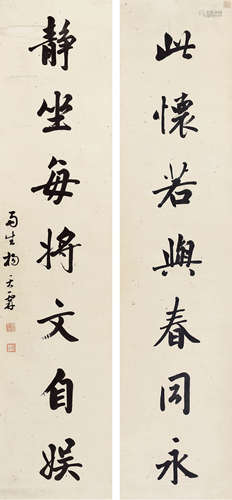 此懷若與春同永
靜坐每將文自娛
雨生楊天霖